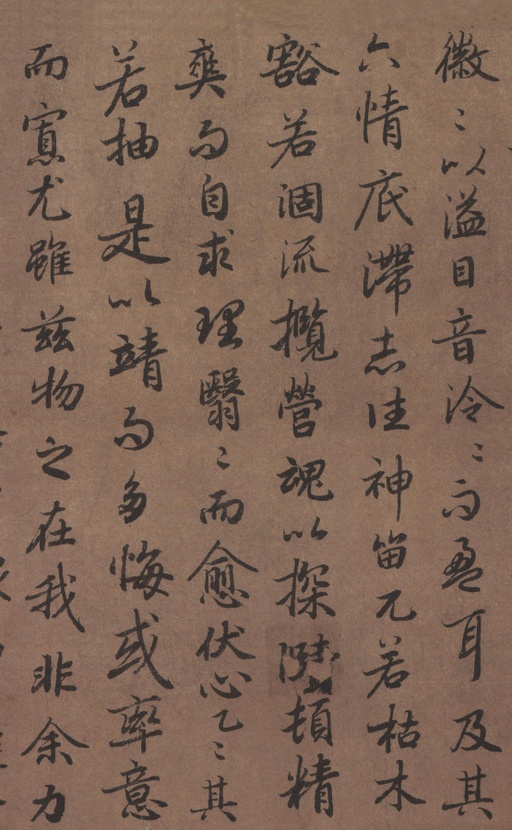 徽〻以溢目音泠〻而盈耳及其
六情底滯志往神留兀若枯木
豁若涸流攬營魂以探賾頓精
爽而自求理翳〻而愈伏心乙〻其
若抽是以靖而多悔或率意
而寡尤雖茲物之在我非余力